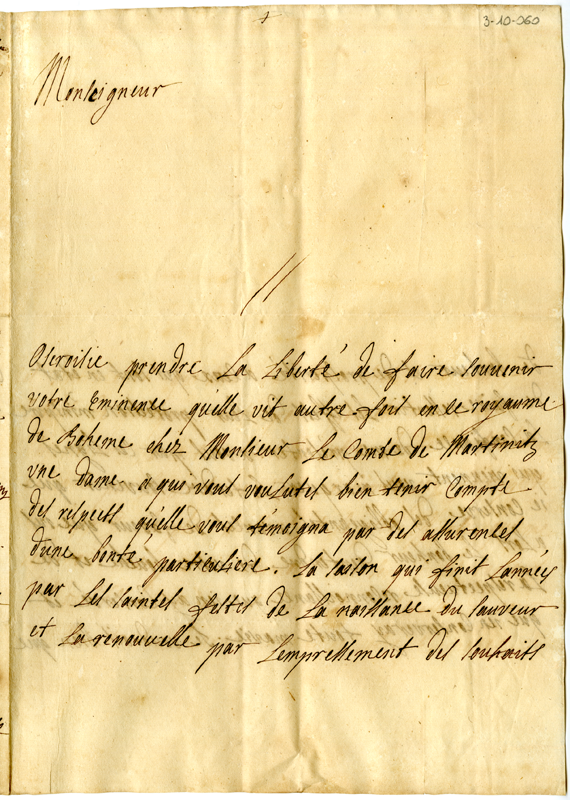 3-10-060
Monseigneur
Oseroisie prendre La Liberté de faire souvenir
votre Eminence qu'elle vit autre fois en ce royaume
de Boheme chez Monsieur Le Comte de Martinitz
vne dame a qui vous voulutes bien tenir Compte
des respects qu'elle vous témoigna par des assurences
d'une bonté particuliere. La saison qui finit L'année
par Les saintes festes de La naissance du sauveur
et La renouvelle par L'empressement des souhaits